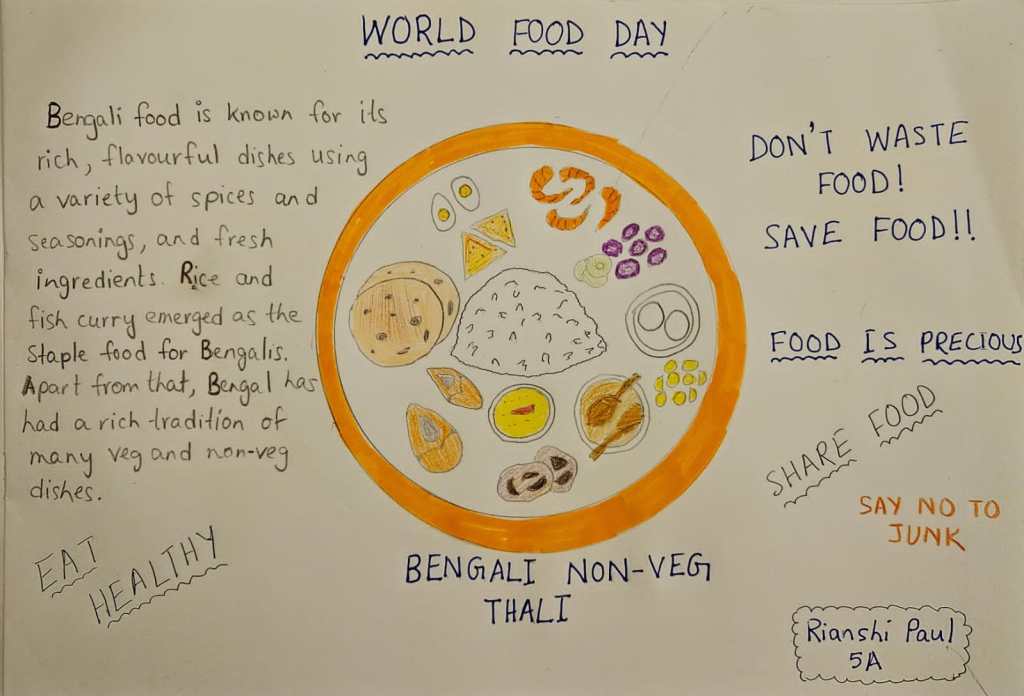 WORLD FOOD DAY
Bengali food is known for its
rich, flavourful dishes using
a variety of spices and
seasonings, and fresh
ingredients. Rice and
fish curry emerged as the
Staple food for Bengalis.
Apart from that, Bengal has
had a rich tradition of
many veg and non-veg
dishes.
EAT
HEALTHY
BENGALI NON-VEG
THALI
DON'T WASTE
FOOD!
SAVE FOOD!!
FOOD IS PRECIOUS
SHARE FOOD
SAY NO TO
JUNK
Rianshi Paul
5A